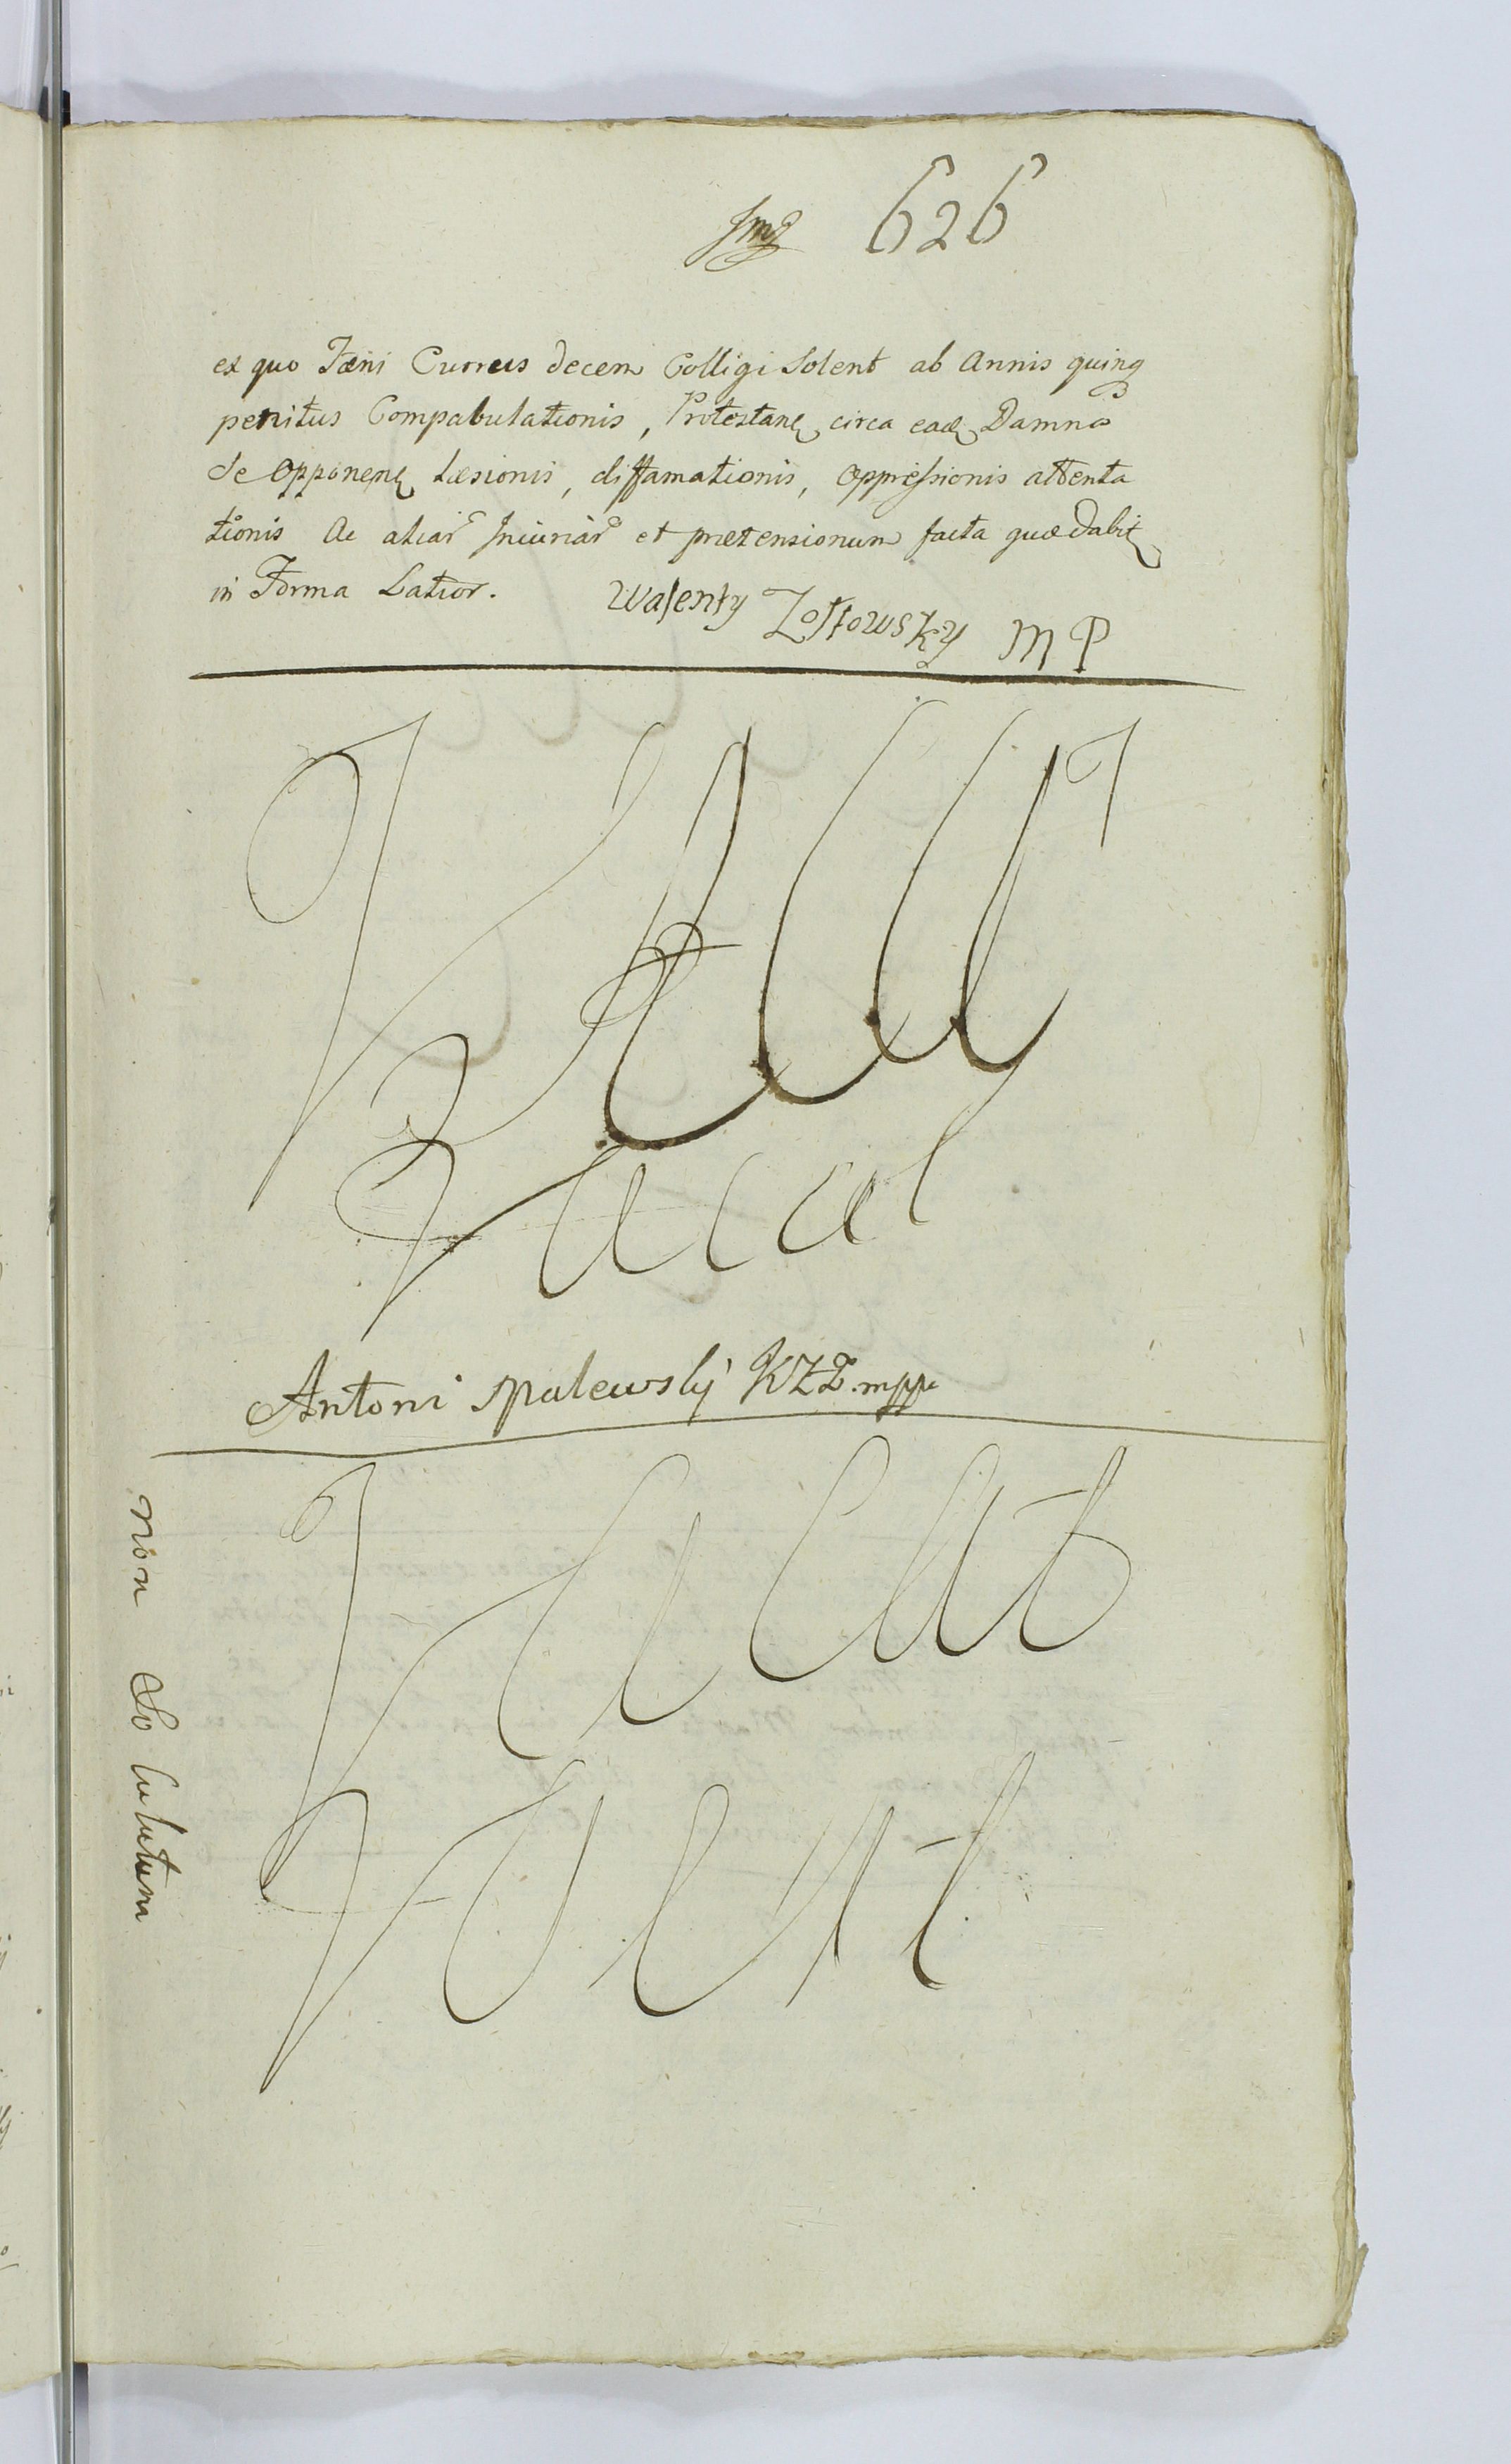 626
ex quo Fæni Currus decem Colligi Solent ab Annis quinq
penitus Compabulationis, Protestanę circa eadę Damna
de Opponenę Læsionis, diffamationis, oppressionis attenta
tionis Ac aliar Iniuriar et prætensionum facta quæ dabię
in Forma Latior.
Walenty Zołtowsky MP
Vacat
Antoni Spalewsky KZZ mpp
Vacat
Vacat
non Solutum